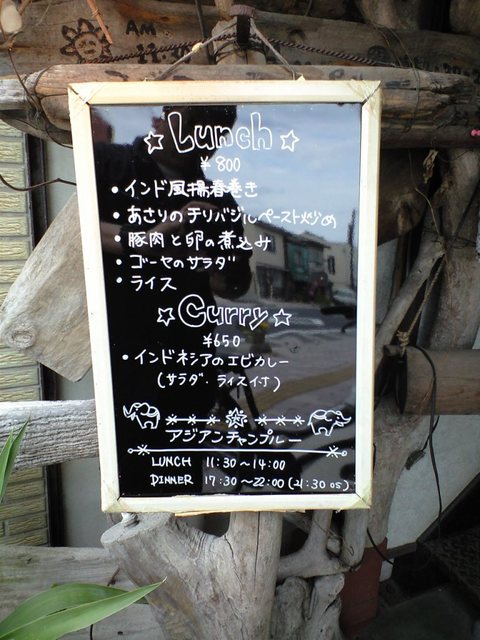 AM
☆Lunch☆
¥800
・インド風揚春巻き
・あさりのチリバジルペースト炒め
・豚肉と卵の煮込み
・ゴーヤのサラダ
・ライス
☆Curry☆
¥650
・インドネシアのエビカレー
(サラダ・ライス付)
アジアンチャンプルー
LUNCH 11:30～14:00
DINNER 17:30～22:00(21:30 OS)